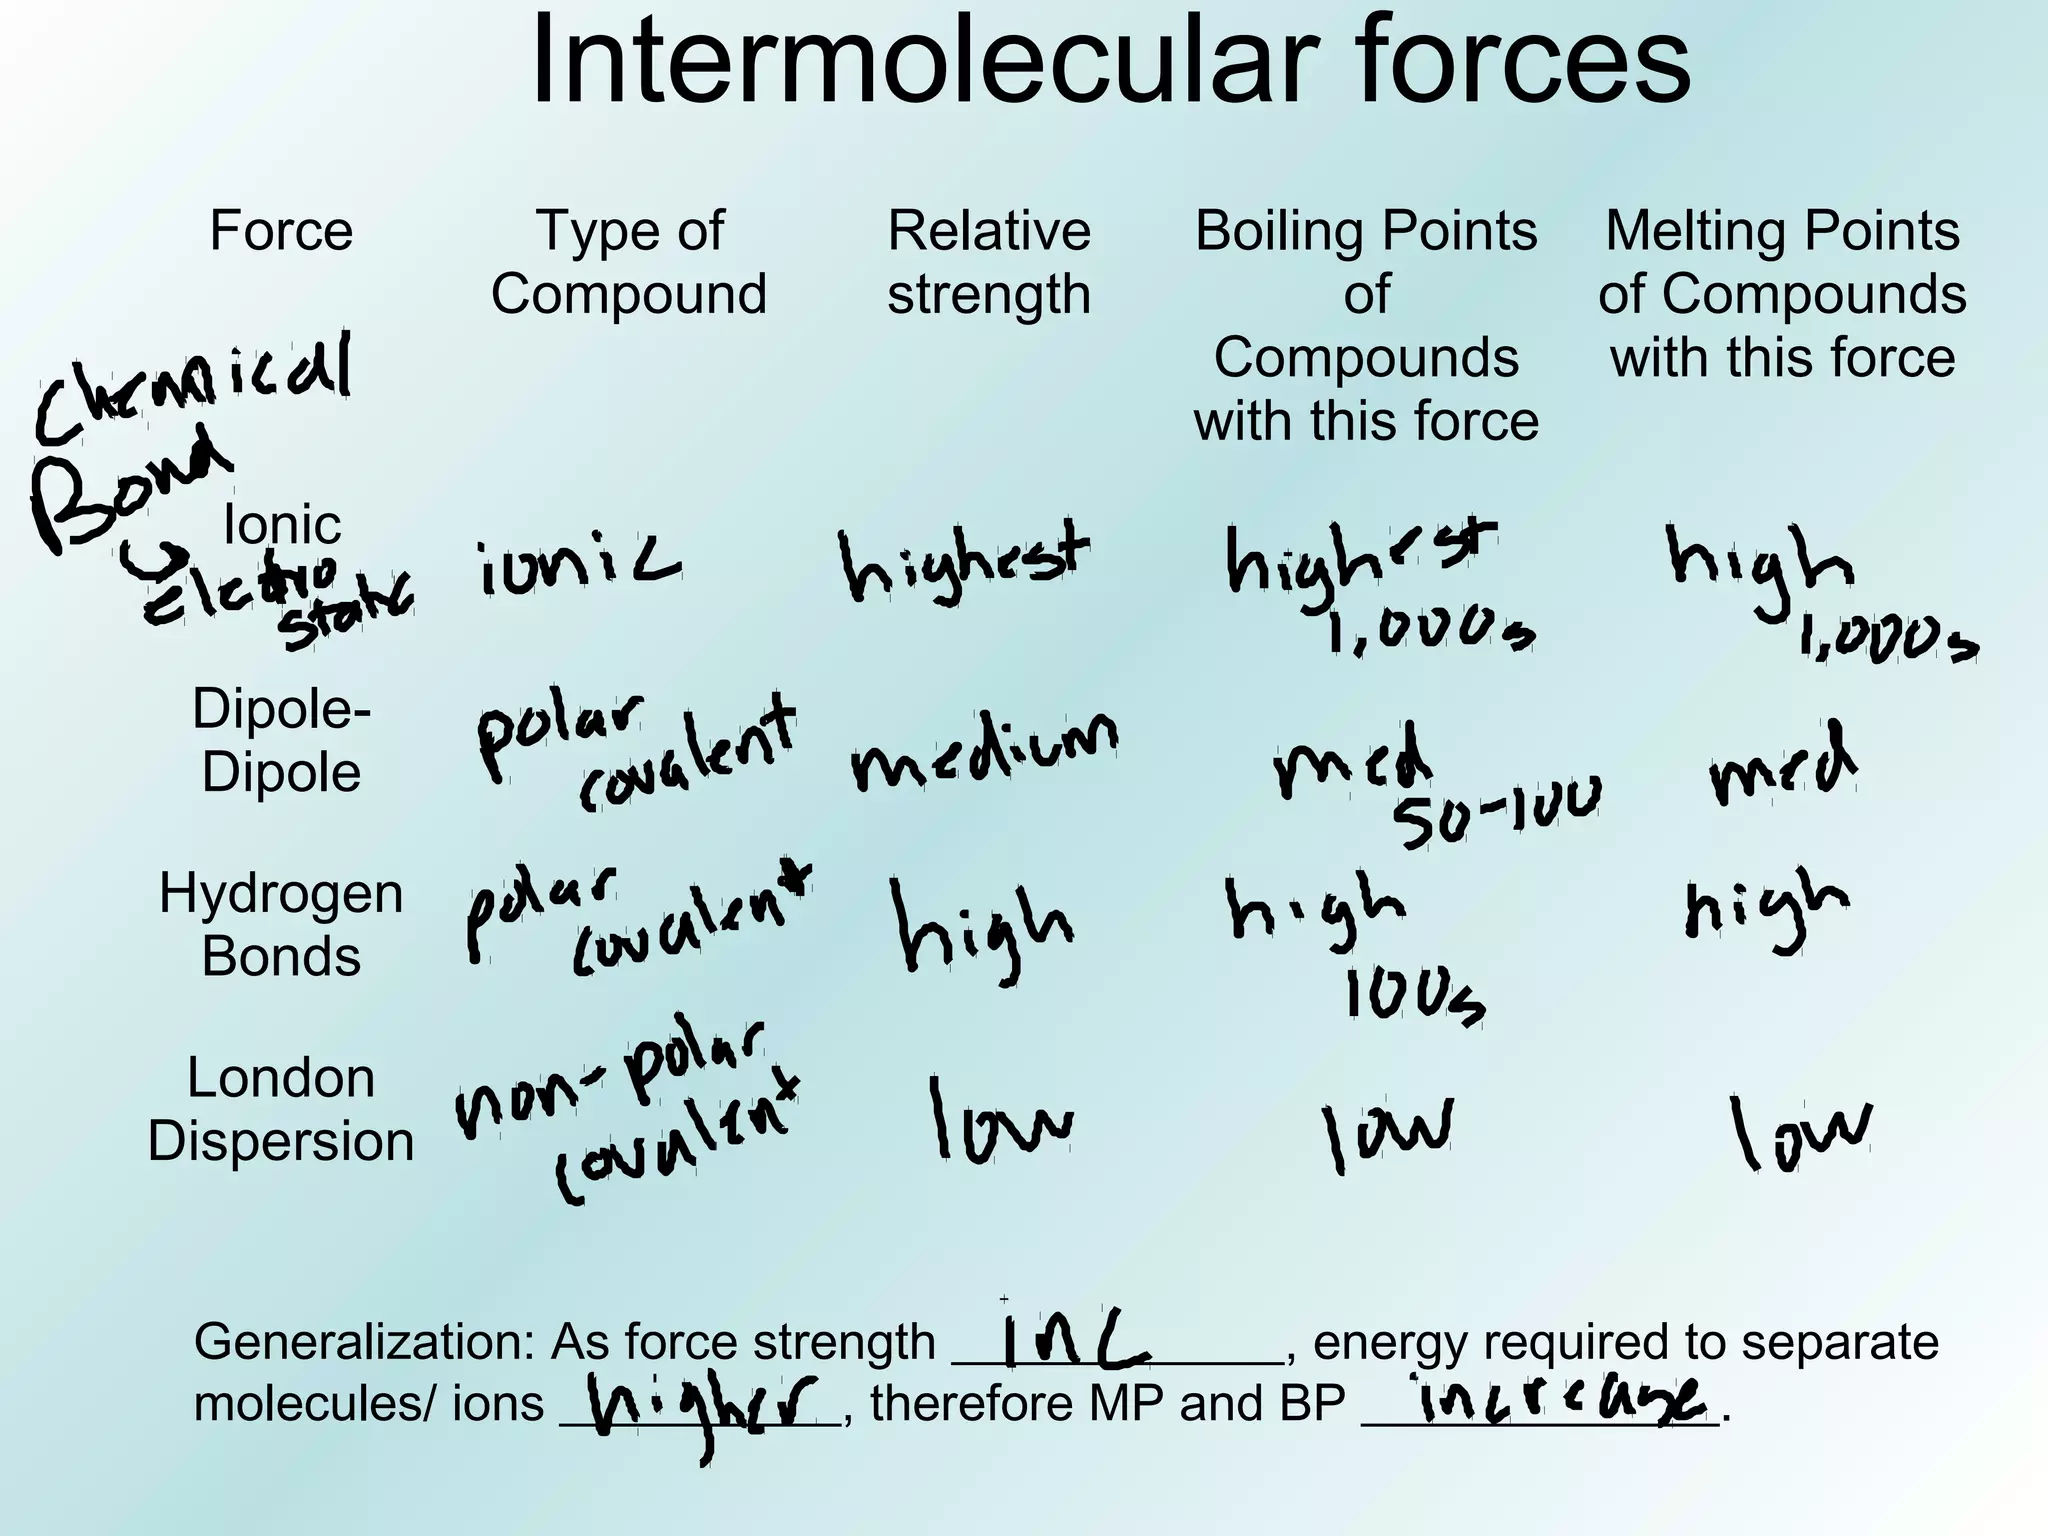 Intermolecular forces
Force
Type of
Compound
Relative
strength
Boiling Points
of
Compounds
with this force
Melting Points
of Compounds
with this force
Chemical
Bond
Ionic
electro
static
ionic
highest
highest
1,000s
high
1,000s
Dipole-
Dipole
polar
covalent
medium
med
50-100
med
Hydrogen
Bonds
polar
covalent
high
high
100s
high
London
Dispersion
non-polar
covalent
low
low
low
Generalization: As force strength inc, energy required to separate
molecules/ ions higher, therefore MP and BP increase.